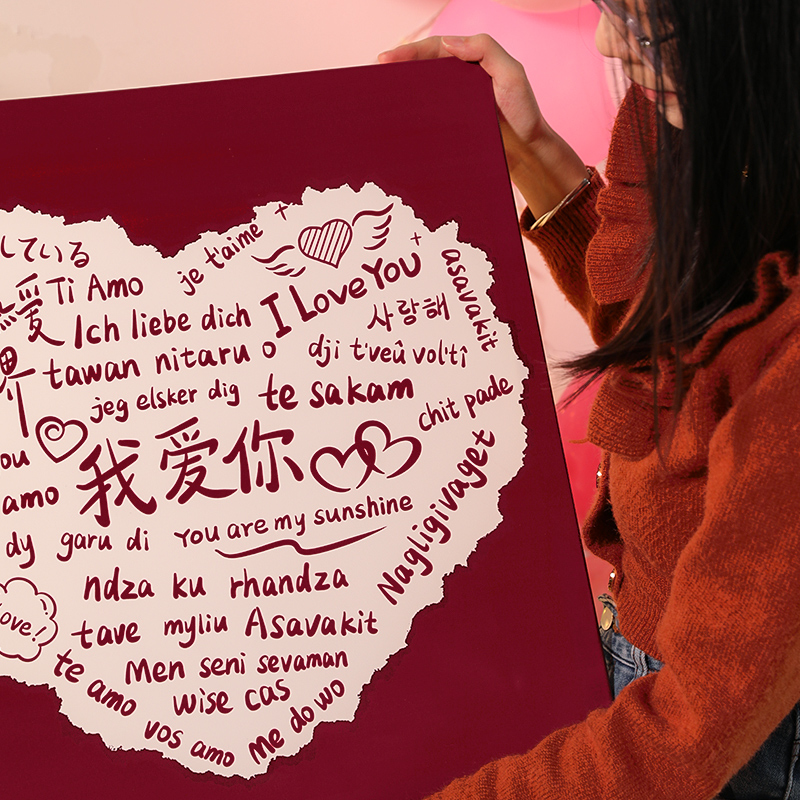 している
je t'aime
愛 Ti Amo
I Love You
asavakit
Ich liebe dich
사랑해
tawan nitaru o
dji t'veû vol'tî
jeg elsker dig
te sakam
chit pade
ou
我爱你
amo
Nagligivaget
dy garu di
You are my sunshine
ndza ku rhandza
Love!
tave myliu Asavakit
Men seni sevaman
te amo
wise cas
Me do wo
vos amo